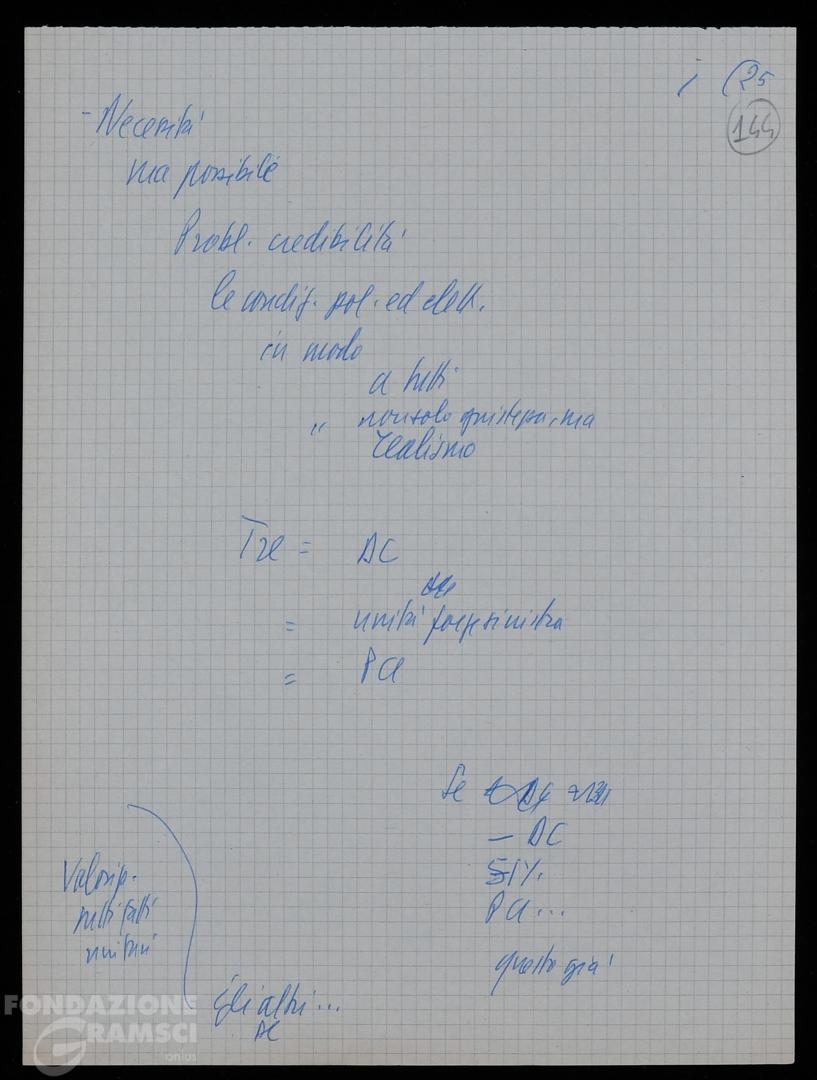 (25
144
- Necessità
ma possibile
Probl. credibilità
le condiz. pol. ed elett.
in modo
a tutti
" non solo giustezza, ma
realismo
Tre = DC
= unità forze sinistra
= PCI
Se
- DC
51%
PCI...
questo già
Valorizz.
tutti fatti
unitari
Gli altri...
DC
FONDAZIONE
GRAMSCI
onlus